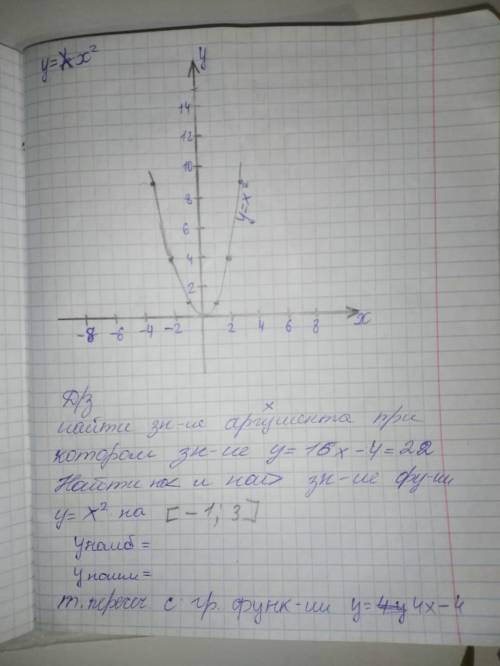 y=x²
y
14
12
10
8
6
4
2
y=x²
-8 -6 -4 -2 2 4 6 8 x
Д/з
x
найти зн-ие аргумента при
котором зн-ие y=16x-4=22
Найти наи< и наи> зн-ие фу-ии
y=x² на [-1; 3]
yнаиб=
yнаим=
т. пересеч с гр. функ-ии y=4x-4